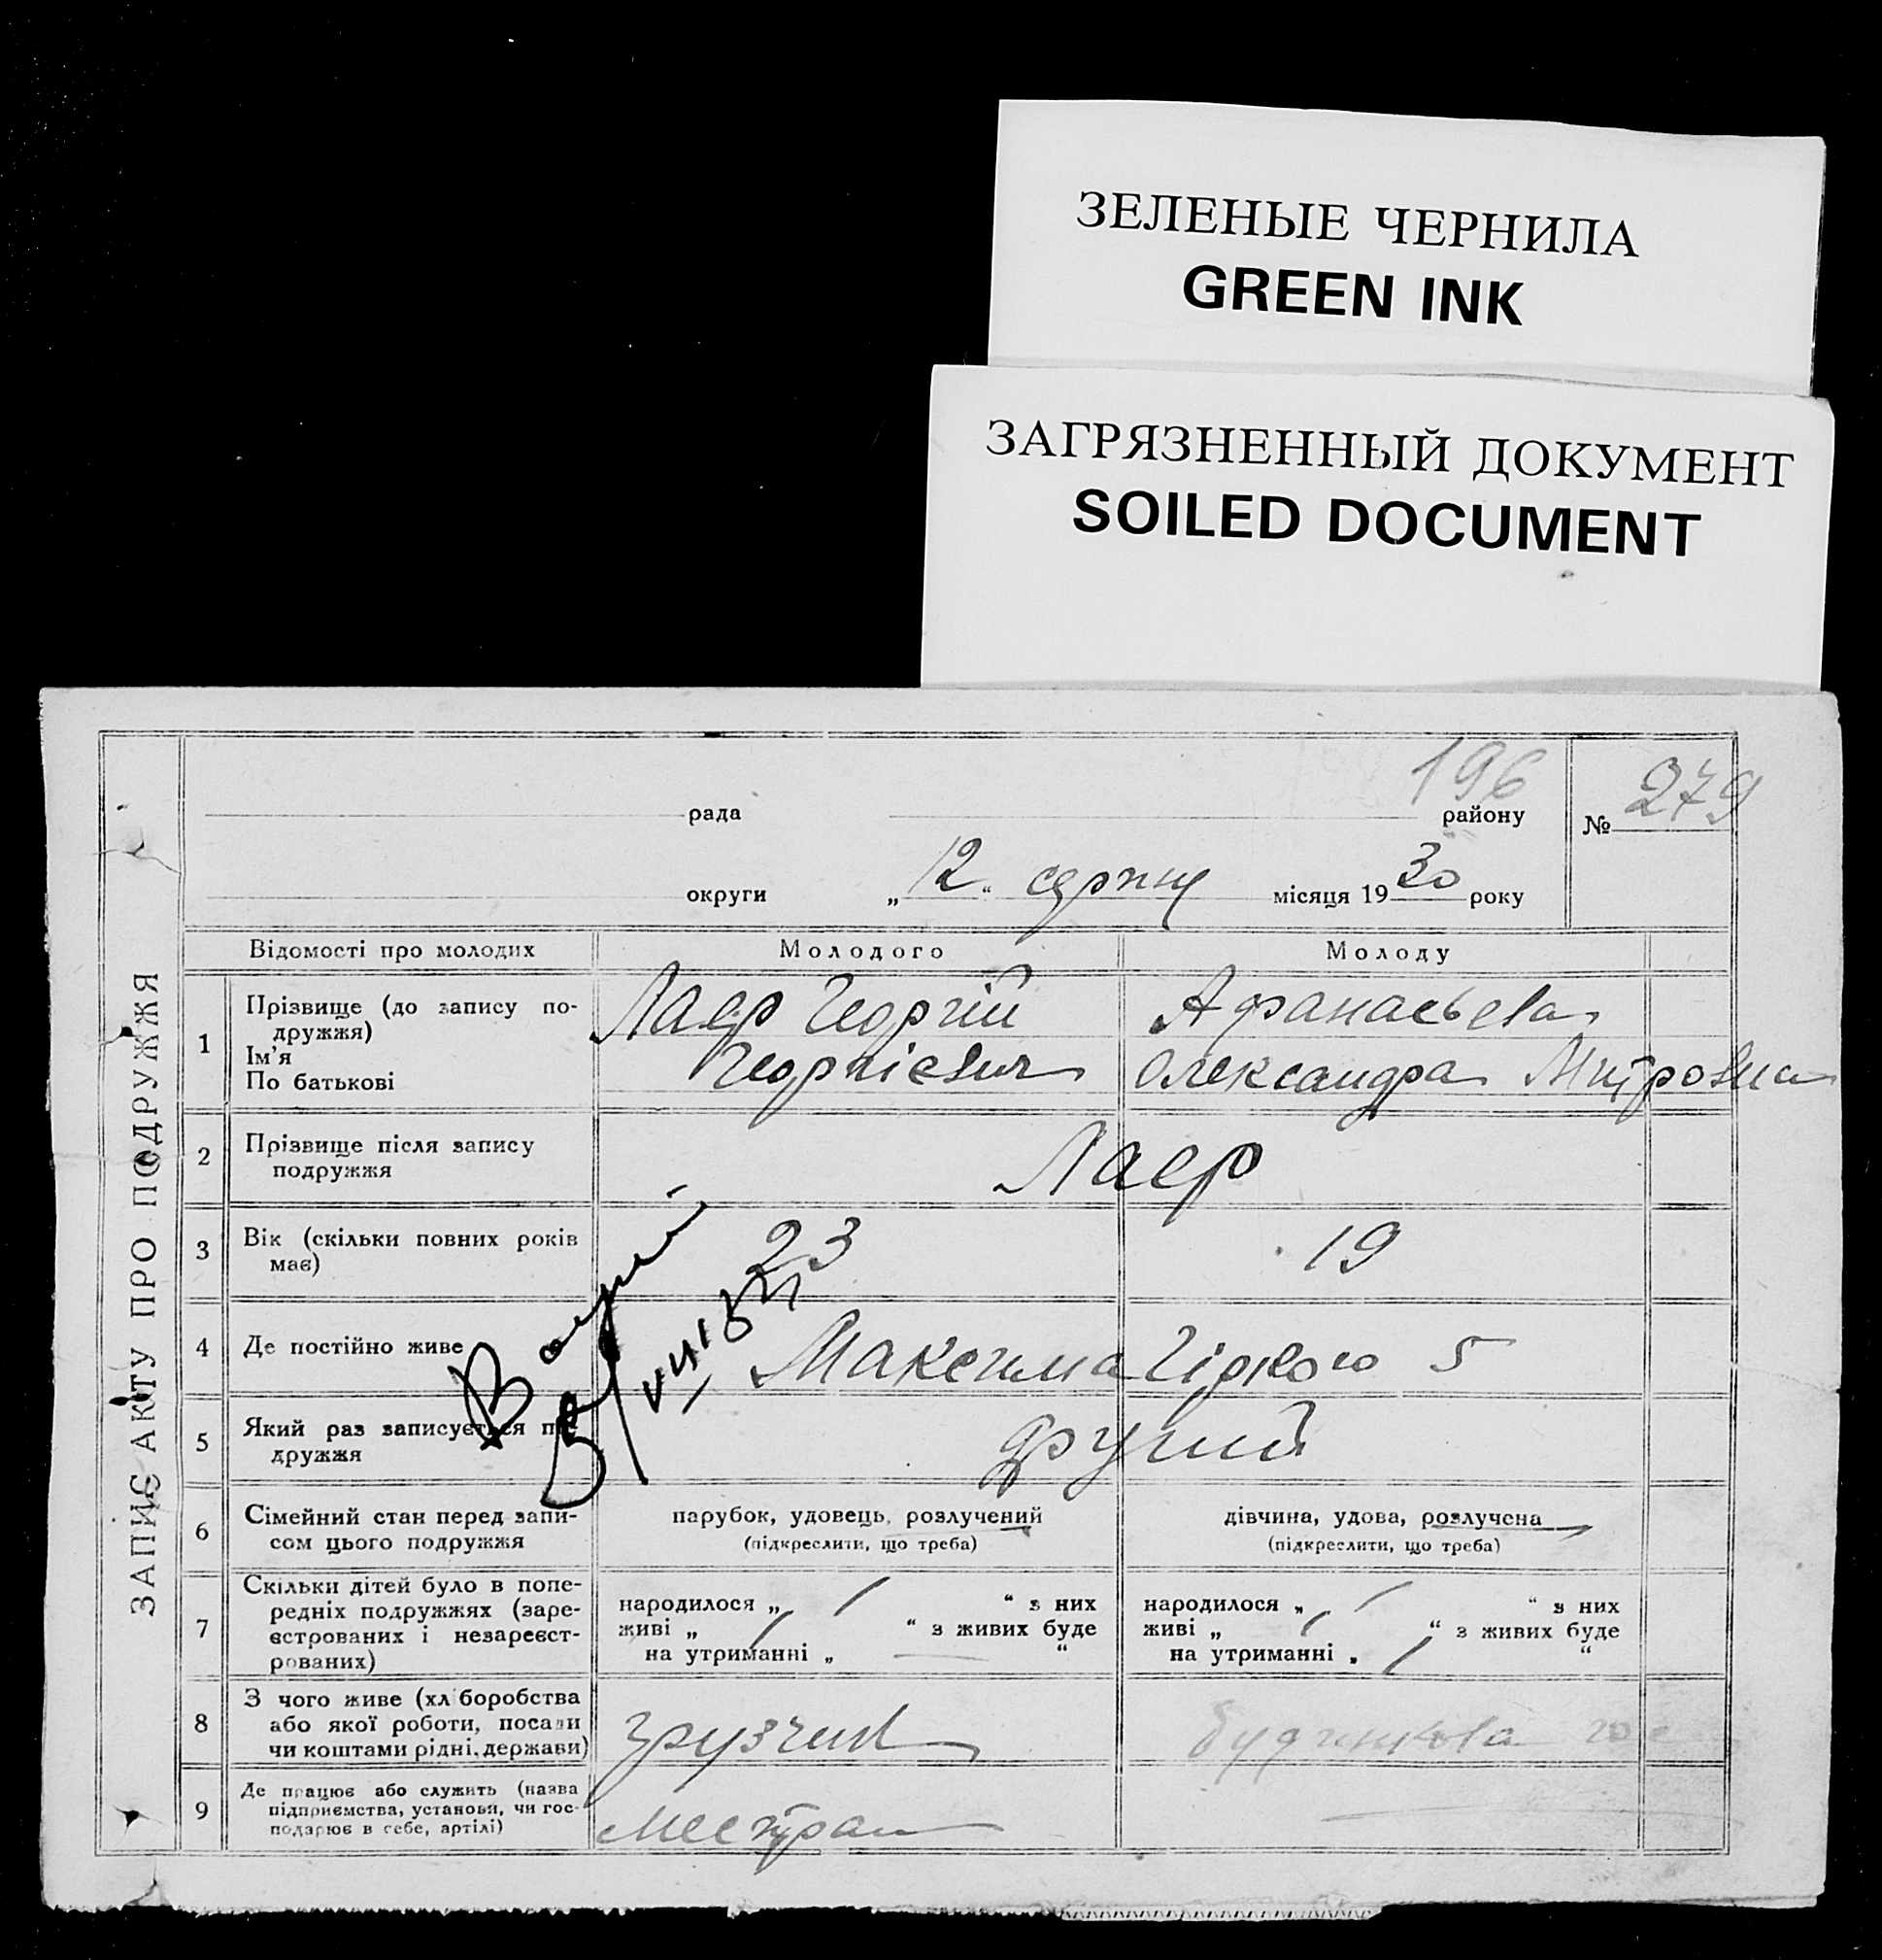 ЗЕЛЕНЫЕ ЧЕРНИЛА
GREEN INK
ЗАГРЯЗНЕННЫЙ ДОКУМЕНТ
SOILED DOCUMENT
ЗАПИС АКТУ ПРО ПОДРУЖЖЯ
196
рада району № 279
округи „12“ серпня місяця 1930 року
Відомості про молодих Молодого Молоду
1 Прізвище (до запису по-
дружжя)
Ім'я
По батькові
Лаєр Георгій
Георгієвич
Афанасьева
Олександра Митровна
2 Прізвище після запису
подружжя
Лаер
3 Вік (скільки повних років
має)
23 19
4 Де постійно живе Максима Гіркого 5
5 Який раз записується по-
дружжя
другий
6 Сімейний стан перед запи-
сом цього подружжя
парубок, удовець, розлучений
(підкреслити, що треба)
дівчина, удова, розлучена
(підкреслити, що треба)
7 Скільки дітей було в попе-
редніх подружжях (заре-
єстрованих і незареєст-
рованих)
народилося „ “ з них
живі „ “ з живих буде
на утриманні „ “
народилося „ “ з них
живі „ “ з живих буде
на утриманні „ “
8 З чого живе (хліборобства
або якої роботи, посади
чи коштами рідні, держави)
грузчик
9 Де працює або служить (назва
підприємства, установи, чи гос-
подарює в себе, артілі)
Местран